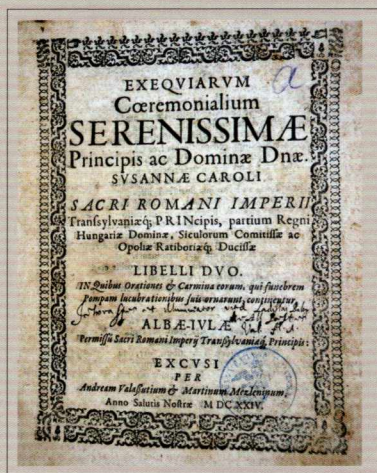 a
EXEQVIARVM
Cœremonialium
SERENISSIMÆ
Principis ac Dominæ Dnæ.
SVSANNÆ CAROLI
SACRI ROMANI IMPERII
Transsylvaniæq; PRINcipis, partium Regni
Hungariæ Dominæ, Siculorum Comitissæ ac
Opoliæ Ratiboriæq; Ducissæ
LIBELLI DVO.
IN Quibus Orationes & Carmina eorum, qui funebrem
Pompam lucubrationibus suis ornarunt, continentur
ALBÆ-IVLÆ
Permissu Sacri Romani Imperij Transylvaniæq; Principis:
EXCVSI
PER
Andream Valaſutium & Martinum Mezleninum,
Anno Salutis Nostræ M DC.XXIV.